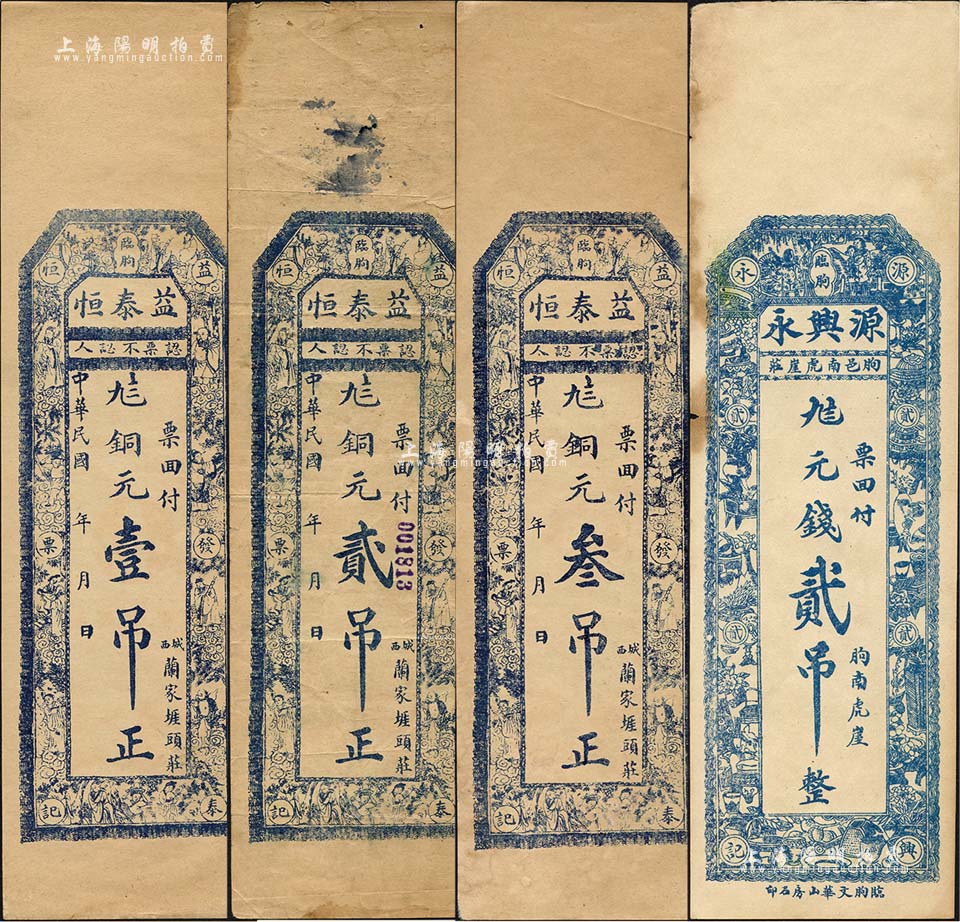 上海陽明拍賣
www.yangmingauction.com
臨朐
益
恒
益泰恒
認票不認人
票面付
銅元壹吊正
中華民國 年 月 日
城西
蘭家埠頭莊
發
票
泰
記
臨朐
益
恒
益泰恒
認票不認人
票面付
銅元貳吊正
001813
中華民國 年 月 日
城西
蘭家埠頭莊
發
票
泰
記
上海陽明拍賣
www.yangmingauction.com
臨朐
益
恒
益泰恒
認票不認人
票面付
銅元叁吊正
中華民國 年 月 日
城西
蘭家埠頭莊
發
票
泰
記
臨朐
源
永
源興永
朐邑南虎崖莊
票面付
元錢貳吊整
朐南虎崖
貳
貳
貳
貳
興
記
臨朐文華山房石印
上海陽明拍賣
www.yangmingauction.com